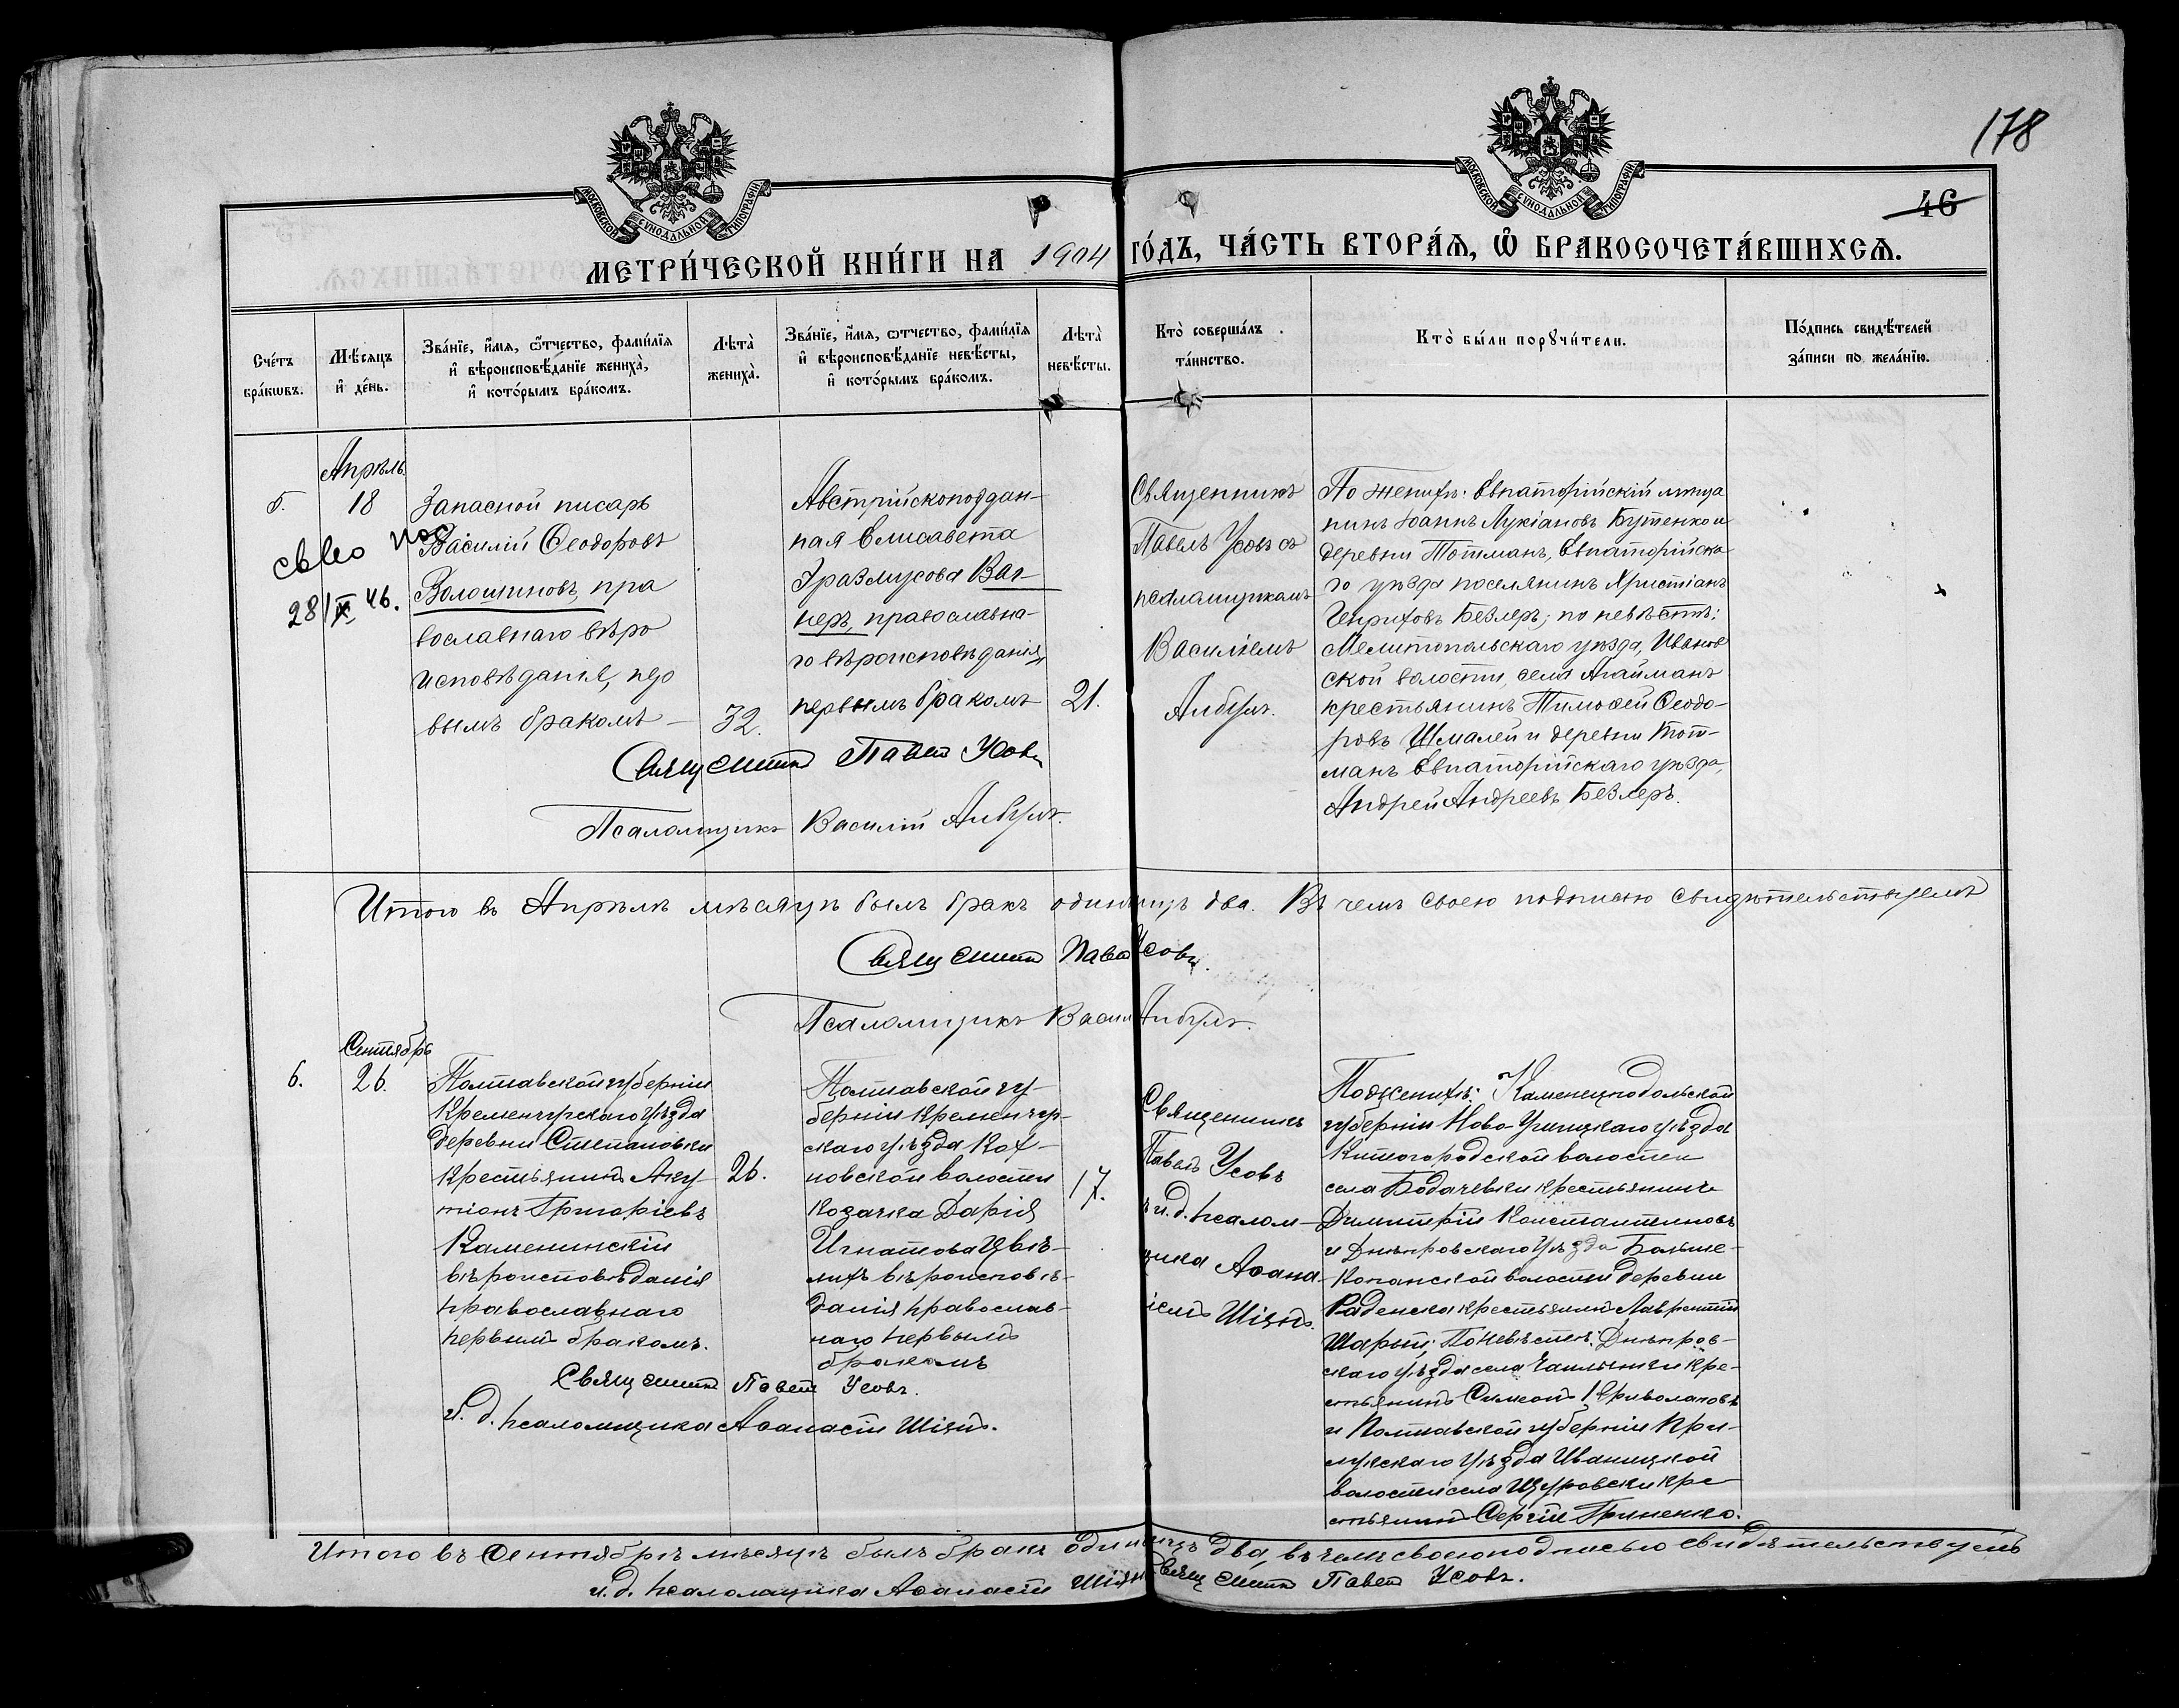 178
46
МОСКОВСКОЙ СѴНОДАЛЬНОЙ ТИПОГРАФІИ
МОСКОВСКОЙ СѴНОДАЛЬНОЙ ТИПОГРАФІИ
МЕТРИ́ЧЕСКОЙ КНИ́ГИ НА 1904 ГО́ДЪ, ЧА́СТЬ ВТОРА́Я, Ѡ БРАКОСОЧЕТА́ВШИХСЯ.
Сче́тъ
бра́кѡвъ.
Мѣ́сяцъ
и҆ де́нь.
Зва́нїе, и҆́мя, ѻ҆́тчество, фами́лїя
и҆ вѣроисповѣ́данїе жениха̀,
и҆ кото́рымъ бра́комъ.
Лѣта̀
жениха̀.
Зва́нїе, и҆́мя, ѻтчество, фами́лїя
и҆ вѣроисповѣ́данїе невѣ́сты,
и҆ кото́рымъ бра́комъ.
Лѣта̀
невѣ́сты.
Кто̀ соверша́лъ
та́инство.
Кто̀ бы́ли порꙋчи́тели.
По́дпись свидѣ́телей
за́писи по жела́нїю.
Апрѣль
5.
18
28/X 46.
Запасной писарь
Василій Ѳеодоровъ
Волошиновъ, пра
вославнаго вѣро
исповѣданія, пер
вымъ бракомъ —
32.
Австрійскоподдан-
ная Елисавета
Эразмусова Ваг-
неръ, православна-
го вѣроисповѣданія,
первымъ бракомъ
21.
Священникъ
Павелъ Усовъ съ
псаломщикомъ
Василіемъ
По женихѣ: Евпаторійскій мѣща
нинъ Іоаннъ Лукіановъ Бутенко и
деревни Тотманъ, Евпаторійска
го уѣзда поселянинъ Христіанъ
Генриховъ Безлеръ; по невѣстѣ:
Мелитопольскаго уѣзда, Иванов
ской волости, села Агайманъ
крестьянинъ Тимоѳей Ѳеодо-
ровъ Шмалей и деревни Тот-
манъ Евпаторійскаго уѣзда,
Андрей Андреевъ Безлеръ.
Священникъ Павелъ Усовъ
Псаломщикъ Василій
Итого въ Апрѣлѣ мѣсяцѣ былъ бракъ одинъ лицъ два. Въ чемъ своею подписью свидѣтельствуемъ
Священникъ Павелъ Усовъ.
Псаломщикъ
Сентябрь
6.
26.
Полтавской губерніи
Кременчугскаго уѣзда
деревни Степановки
крестьянинъ
Григоріевъ
Каменинскій
вѣроисповѣданія
православнаго
первымъ бракомъ.
26.
Полтавской гу-
берніи Кременчуг-
скаго уѣзда Кох-
новской волости
козачка Дарія
Игнатова
вѣроисповѣ-
данія православ-
наго первымъ
бракомъ
17.
Священникъ
Павелъ Усовъ
и. д. псалом-
щика Аѳана-
сіемъ
По женихѣ: Каменецподольской
губерніи Ново-Ушицкаго уѣзда
Китогородской волости
села крестьянинъ
Димитрій Константиновъ
и Днѣпровскаго уѣзда Больше-
Копанской волости деревни
Раденска крестьянинъ Лаврентій
Шарый; По невѣстѣ: Днѣпров-
скаго уѣзда села Чаплынки кре-
стьянинъ Симеонъ
и Полтавской губерніи При-
лукскаго уѣзда Иваницкой
волости села Щуровски кре-
стьянинъ Сергій Гриненко.
Священникъ Павелъ Усовъ.
и. д. псаломщика Аѳанасій
Итого въ Сентябрѣ мѣсяцѣ былъ бракъ одинъ лицъ два, въ чемъ своею подписью свидѣтельствуемъ
Священникъ Павелъ Усовъ.
и. д. псаломщика Аѳанасій